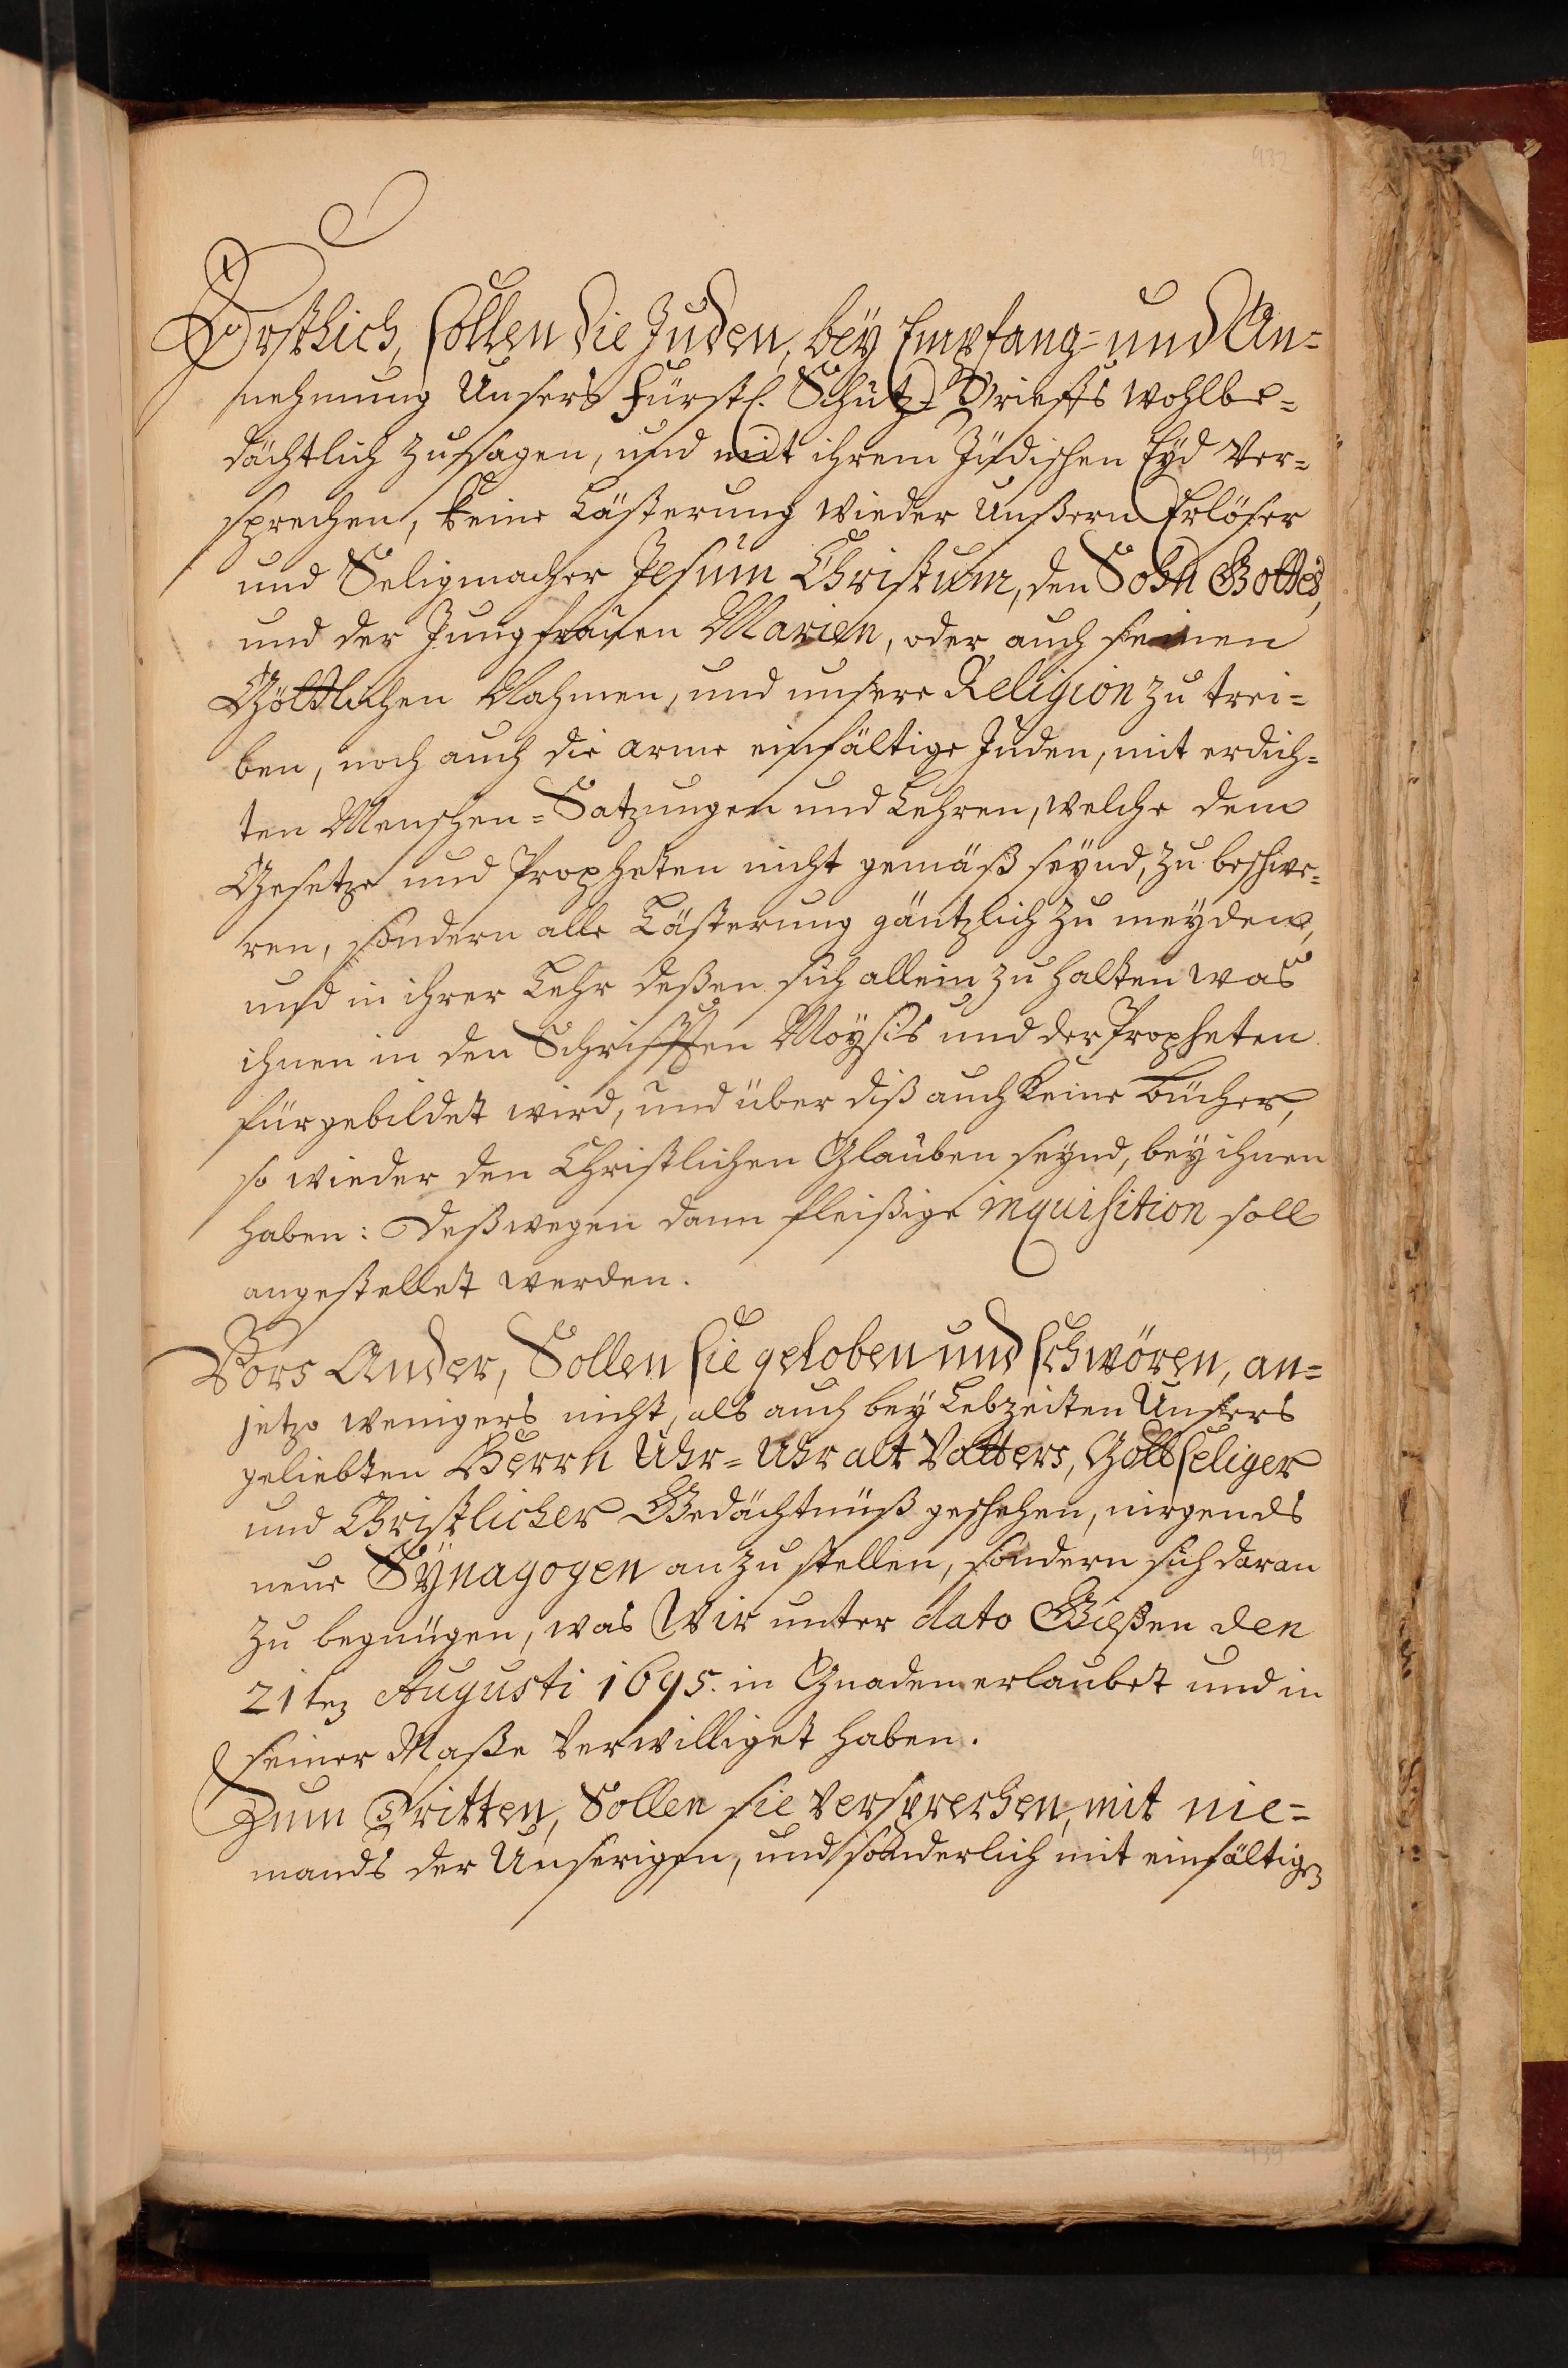 932
Erstlich, sollen die Juden, bey Empfang- und An=
nehmung Unsers Fürstl. Schutz-Brieffs wohlbe=
dächtlich zusagen, und mit ihrem Jüdischen Eyd ver=
sprechen, keine Lästerung wieder unßern Erlöser
und Seligmacher Jesum Christum, den Sohn Gottes,
und der Jungfrauen Marien, oder auch seinen
Göttlichen Nahmen, und unsere Religion zu trei=
ben, noch auch die arme einfältige Juden, mit erdich=
ten Menschen=Satzungen und Lehren, welche dem
Gesetze und Propheten nicht gemäß seynd, zu beschwe=
ren, sondern alle Lästerung gäntzlich zu meyden,
und in ihrer Lehr deßen sich allein zu halten was
ihnen in den Schrifften Moysis und der Propheten
fürgebildet wird, und über diß auch keine Bücher,
so wieder den Christlichen Glauben seynd, bey ihnen
haben: Deßwegen dann fleißige inquisition soll
angestellet werden.
Vors Ander, Sollen sie geloben und schwören, an=
jetzo wenigers nicht, als auch bey Lebzeiten Unsers
geliebten Herrn Uhr=Uhralt Vatters, Gottseliger
und Christlicher Gedächtnüß geschehen, nirgends
neue Synagogen anzustellen, sondern sich daran
zu begnügen, was Wir unter dato Gießen den
21ten Augusti 1695. in Gnaden erlaubet und in
seiner Maße verwilliget haben.
Zum Dritten, Sollen sie versprechen, mit nie=
mands der Unserigen, und sonderlich mit einfältigen